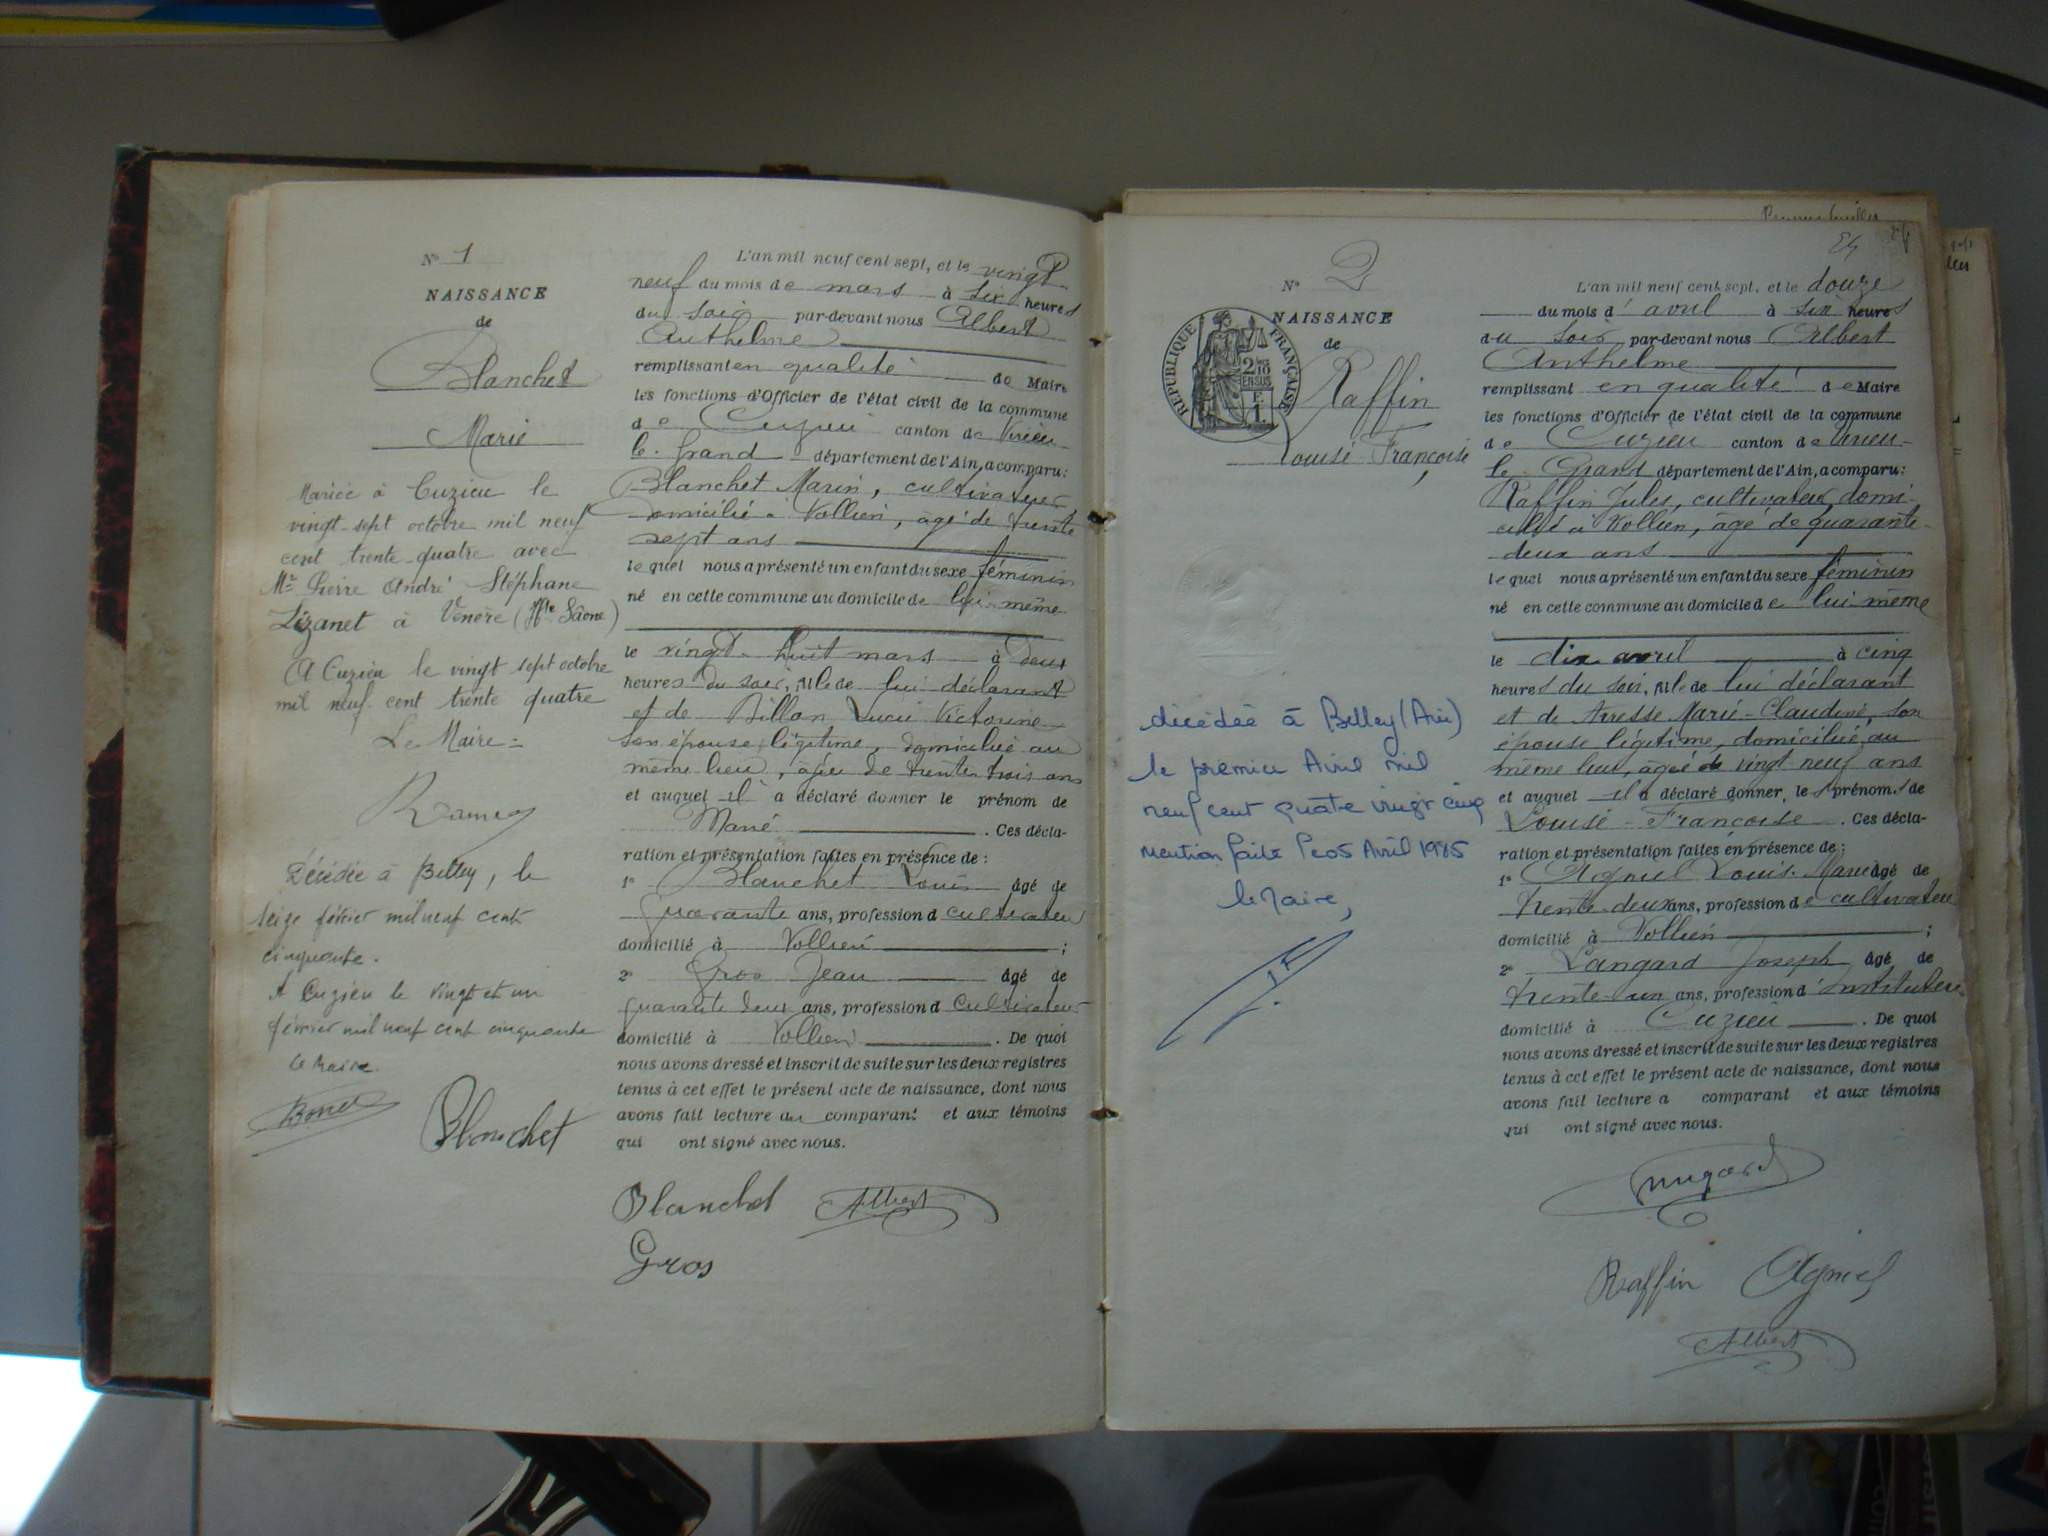 N° 1
NAISSANCE
de
Blanchet
Marie
Mariée à Cuzieu le
vingt-sept octobre mil neuf
cent trente-quatre avec
Mr Pierre André Stéphane
Lizanet à Venère (Hte Saône)
A Cuzieu le vingt sept octobre
mil neuf cent trente quatre
Le Maire :
Décédée à Belley, le
seize février mil neuf cent
cinquante.
A Cuzieu le vingt et un
février mil neuf cent cinquante
le maire.
Blanchet
L'an mil neuf cent sept, et le vingt
neuf du mois de mars à six heures
du soir par-devant nous Albert
Anthelme
remplissant en qualité de Maire
les fonctions d'Officier de l'état civil de la commune
de Cuzieu canton de Virieu
le Grand département de l'Ain, a comparu :
Blanchet Marin, cultivateur
domicilié à Vollien, âgé de trente
sept ans
lequel nous a présenté un enfant du sexe féminin
né en cette commune au domicile de lui-même
le vingt-huit mars à deux
heures du soir, fille de lui déclarant
et de Billon Lucie Victorine
son épouse légitime, domiciliée au
même lieu, âgée de trente trois ans
et auquel il a déclaré donner le prénom de
Marie . Ces décla-
ration et présentation faites en présence de :
1° Blanchet Louis âgé de
quarante ans, profession d cultivateur
domicilié à Vollien ;
2° Gros Jean âgé de
quarante deux ans, profession d cultivateur
domicilié à Vollien . De quoi
nous avons dressé et inscrit de suite sur les deux registres
tenus à cet effet le présent acte de naissance, dont nous
avons fait lecture au comparant et aux témoins
qui ont signé avec nous.
Blanchet Albert
Gros
24
N° 2
NAISSANCE
de
RÉPUBLIQUE FRANÇAISE
2/10 EN SUS
Raffin
Louise Françoise
décédée à Belley (Ain)
le premier Avril mil
neuf cent quatre vingt cinq
mention faite le 05 Avril 1985
le Maire,
L'an mil neuf cent sept, et le douze
du mois d'avril à six heures
du soir par-devant nous Albert
Anthelme
remplissant en qualité de Maire
les fonctions d'Officier de l'état civil de la commune
de Cuzieu canton de Virieu-
le-Grand département de l'Ain, a comparu :
Raffin Jules, cultivateur, domi-
cilié à Vollien, âgé de quarante-
deux ans
lequel nous a présenté un enfant du sexe féminin
né en cette commune au domicile de lui-même
le dix avril à cinq
heures du soir, fille de lui déclarant
et de Marie-Claudine, son
épouse légitime, domiciliée au
même lieu, âgée de vingt neuf ans
et auquel il a déclaré donner, les prénoms de
Louise-Françoise . Ces décla-
ration et présentation faites en présence de :
1° Agniel Louis-Marie âgé de
trente-deux ans, profession de cultivateur
domicilié à Vollien ;
2° Langard Joseph âgé de
trente-un ans, profession d'instituteur
domicilié à Cuzieu . De quoi
nous avons dressé et inscrit de suite sur les deux registres
tenus à cet effet le présent acte de naissance, dont nous
avons fait lecture a comparant et aux témoins
qui ont signé avec nous.
Raffin Agniel
Albert